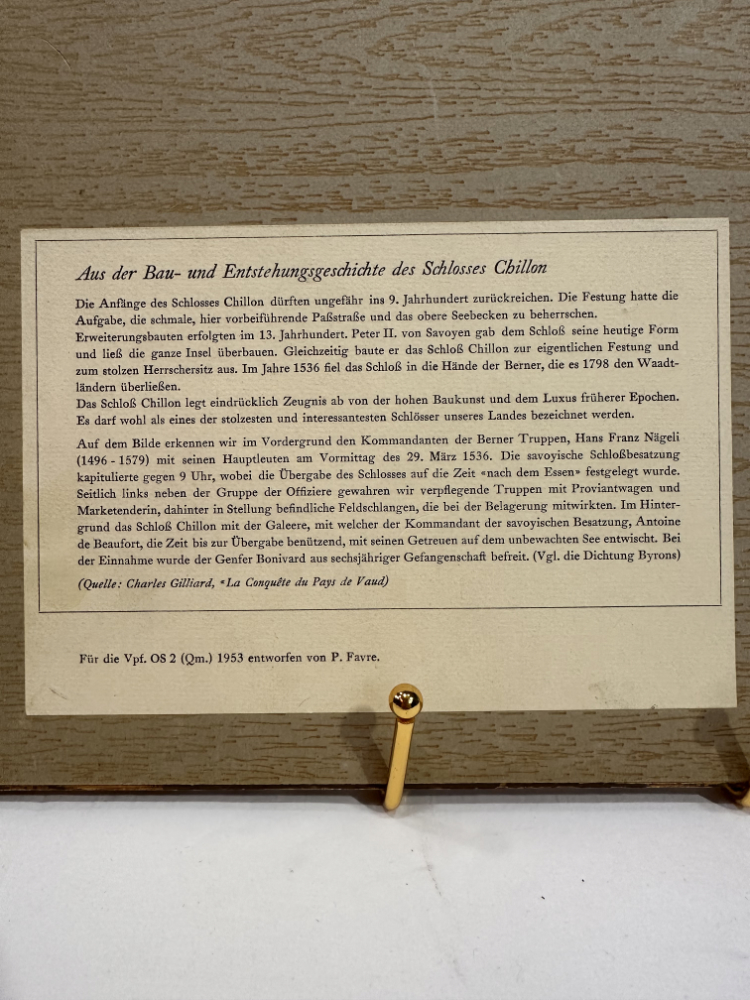 Aus der Bau- und Entstehungsgeschichte des Schlosses Chillon
Die Anfänge des Schlosses Chillon dürften ungefähr ins 9. Jahrhundert zurückreichen. Die Festung hatte die
Aufgabe, die schmale, hier vorbeiführende Paßstraße und das obere Seebecken zu beherrschen.
Erweiterungsbauten erfolgten im 13. Jahrhundert. Peter II. von Savoyen gab dem Schloß seine heutige Form
und ließ die ganze Insel überbauen. Gleichzeitig baute er das Schloß Chillon zur eigentlichen Festung und
zum stolzen Herrschersitz aus. Im Jahre 1536 fiel das Schloß in die Hände der Berner, die es 1798 den Waadt-
ländern überließen.
Das Schloß Chillon legt eindrücklich Zeugnis ab von der hohen Baukunst und dem Luxus früherer Epochen.
Es darf wohl als eines der stolzesten und interessantesten Schlösser unseres Landes bezeichnet werden.
Auf dem Bilde erkennen wir im Vordergrund den Kommandanten der Berner Truppen, Hans Franz Nägeli
(1496 - 1579) mit seinen Hauptleuten am Vormittag des 29. März 1536. Die savoyische Schloßbesatzung
kapitulierte gegen 9 Uhr, wobei die Übergabe des Schlosses auf die Zeit «nach dem Essen» festgelegt wurde.
Seitlich links neben der Gruppe der Offiziere gewahren wir verpflegende Truppen mit Proviantwagen und
Marketenderin, dahinter in Stellung befindliche Feldschlangen, die bei der Belagerung mitwirkten. Im Hinter-
grund das Schloß Chillon mit der Galeere, mit welcher der Kommandant der savoyischen Besatzung, Antoine
de Beaufort, die Zeit bis zur Übergabe benützend, mit seinen Getreuen auf dem unbewachten See entwischt. Bei
der Einnahme wurde der Genfer Bonivard aus sechsjähriger Gefangenschaft befreit. (Vgl. die Dichtung Byrons)
(Quelle: Charles Gilliard, «La Conquête du Pays de Vaud)
Für die Vpf. OS 2 (Qm.) 1953 entworfen von P. Favre.